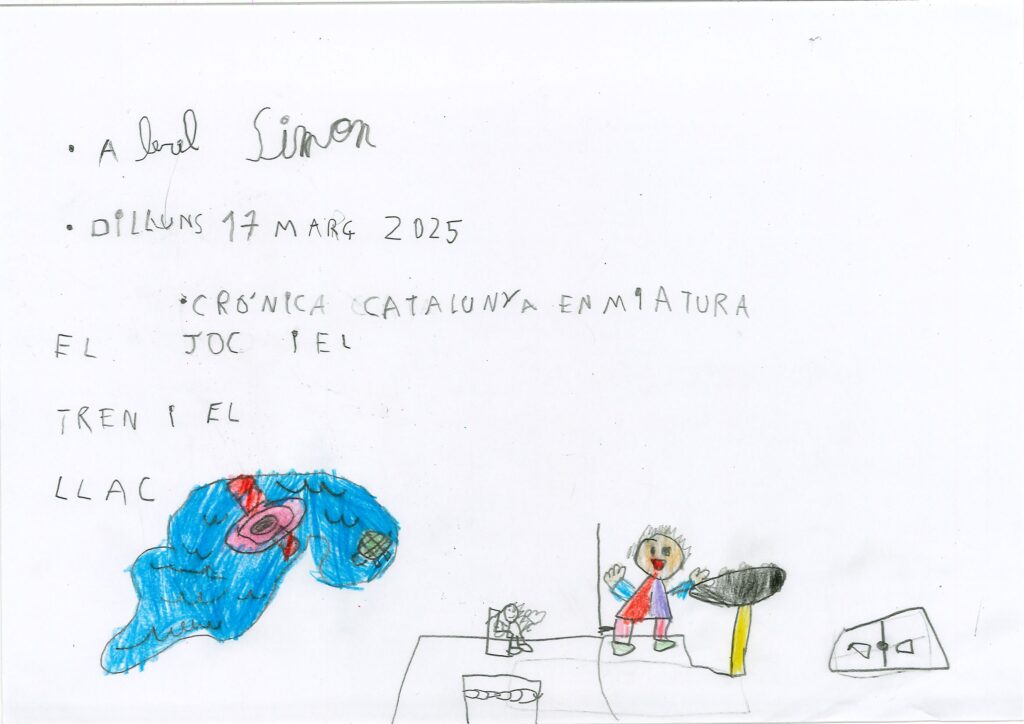 · A bril Simon
· DILLUNS 17 MARG 2025
· CRÓNICA CATALUNYA EN MIATURA
EL JOC I EL
TREN I EL
LLAC